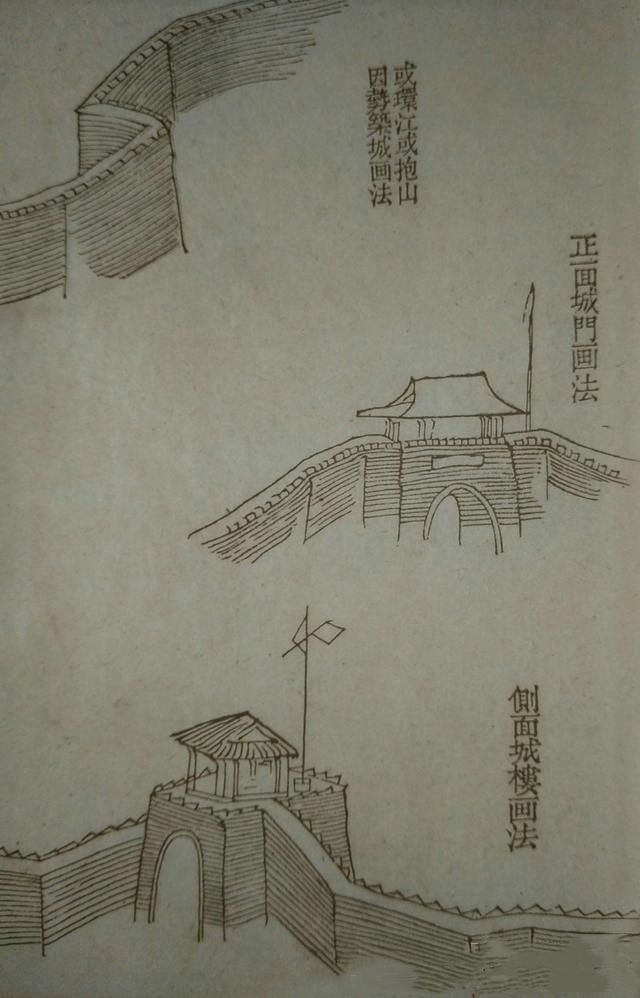 或環江或抱山
因勢築城画法
正面城門画法
側面城樓画法